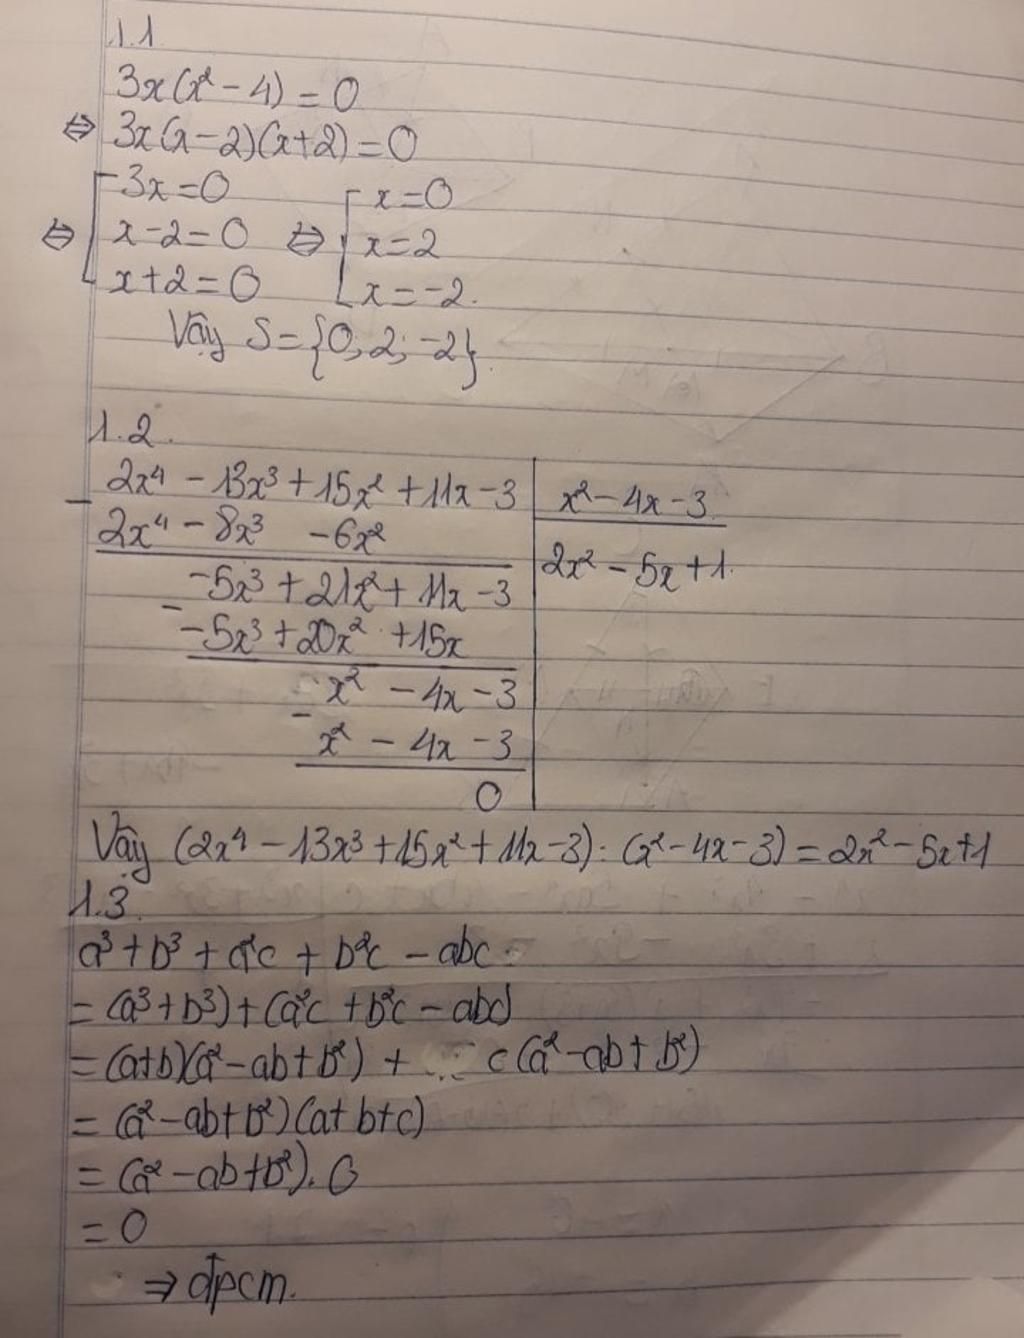 1.1
3x(x² - 4) = 0
⇔ 3x(x - 2)(x + 2) = 0
⇔ [ 3x = 0 [ x = 0
x - 2 = 0 ⇔ x = 2
x + 2 = 0 x = -2.
Vậy S = {0; 2; -2}.
1.2.
2x⁴ - 13x³ + 15x² + 11x - 3 | x² - 4x - 3
- 2x⁴ - 8x³ - 6x² | 2x² - 5x + 1.
-5x³ + 21x² + 11x - 3
- -5x³ + 20x² + 15x
x² - 4x - 3
- x² - 4x - 3
0
Vậy (2x⁴ - 13x³ + 15x² + 11x - 3) : (x² - 4x - 3) = 2x² - 5x + 1
1.3.
a³ + b³ + a²c + b²c - abc
= (a³ + b³) + (a²c + b²c - abc)
= (a+b)(a² - ab + b²) + c(a² - ab + b²)
= (a² - ab + b²)(a + b + c)
= (a² - ab + b²). 0
= 0
⇒ đpcm.